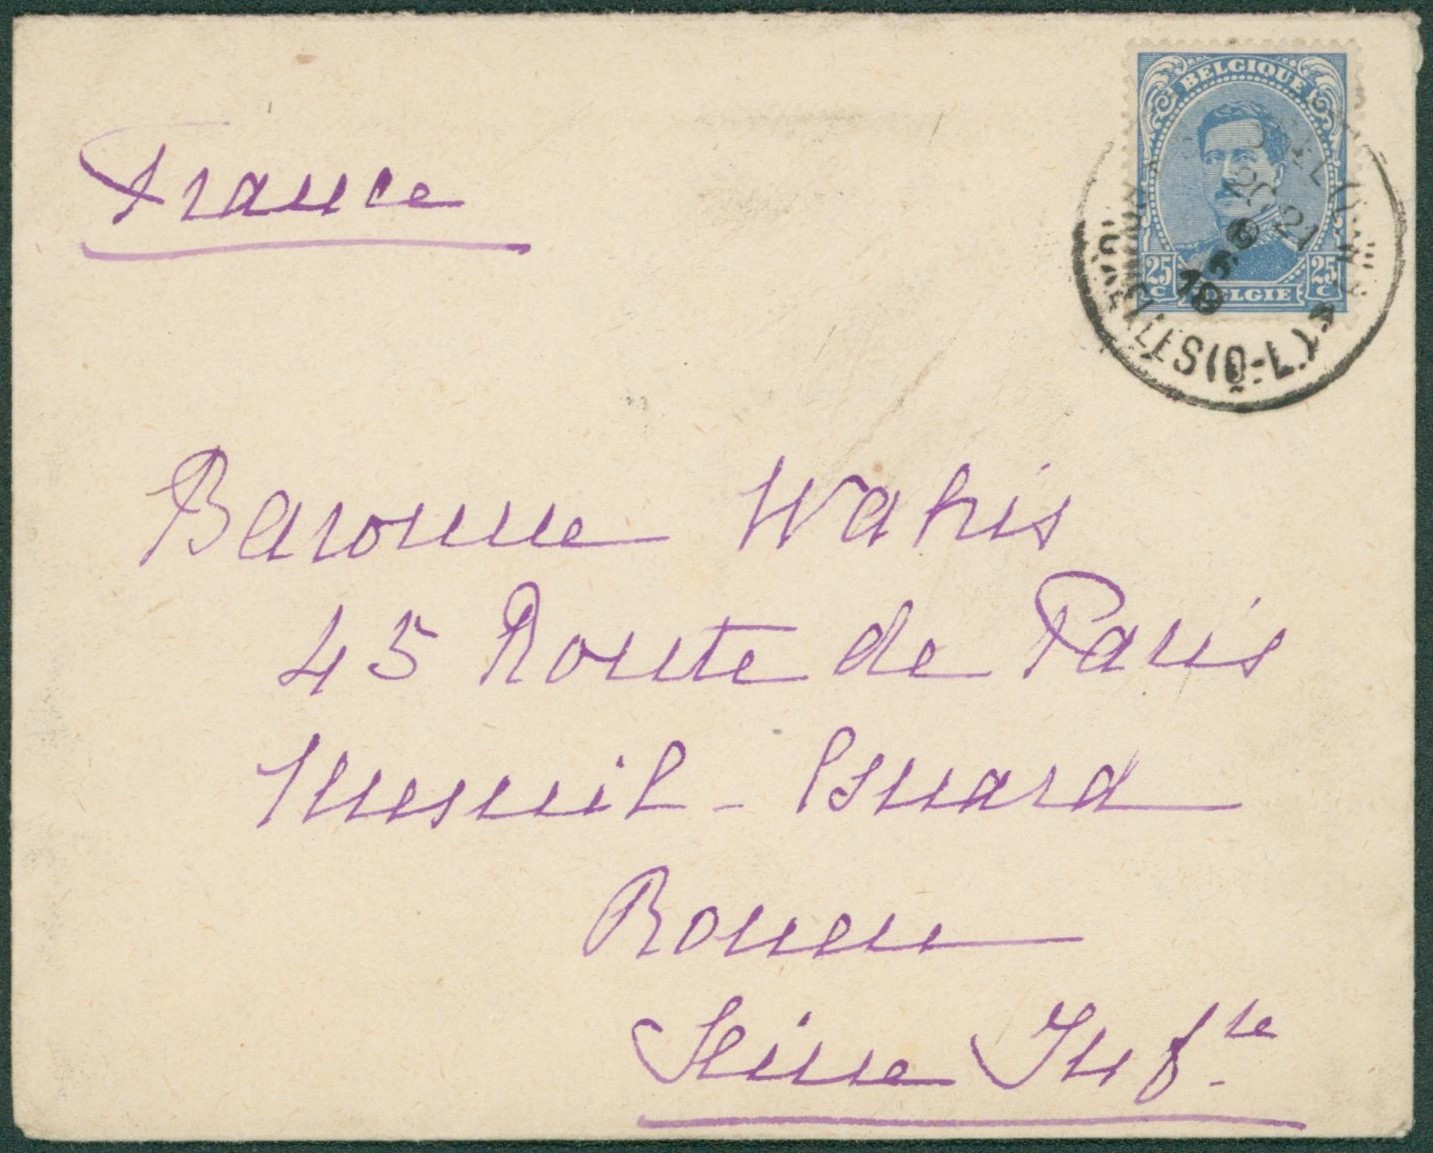 BELGIQUE
25 C BELGIE 25 C
21
18
France
Baronne Wahis
45 Route de Paris
Mesnil - Esnard
Rouen
Seine Inf.te